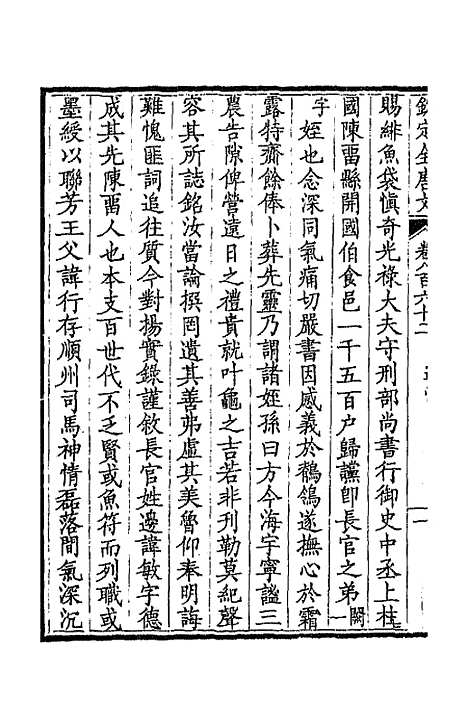 欽定全唐文 卷八百六十二
賜緋魚袋慎奇光祿大夫守刑部尚書行御史中丞上柱
國陳畱縣開國伯食邑一千五百户歸讜卽長官之弟闕一
字姪也念深同氣痛切嚴書因感義於鶺鴒遂撫心於霜
露特齋餘俸卜葬先靈乃謂諸姪孫曰方今海宇寧謐三
農告隙俾營遠日之禮貴就叶龜之吉若非刊勒莫紀聲
容其所誌銘汝當論撰罔遺其善弗虛其美魯仰奉明誨
難愧匪詞追往質今對揚實錄謹敘長官姓邊諱敏字德
成其先陳畱人也本支百世代不乏賢或魚符而列職或
墨綬以聯芳王父諱行存順州司馬神情磊落間氣深沉